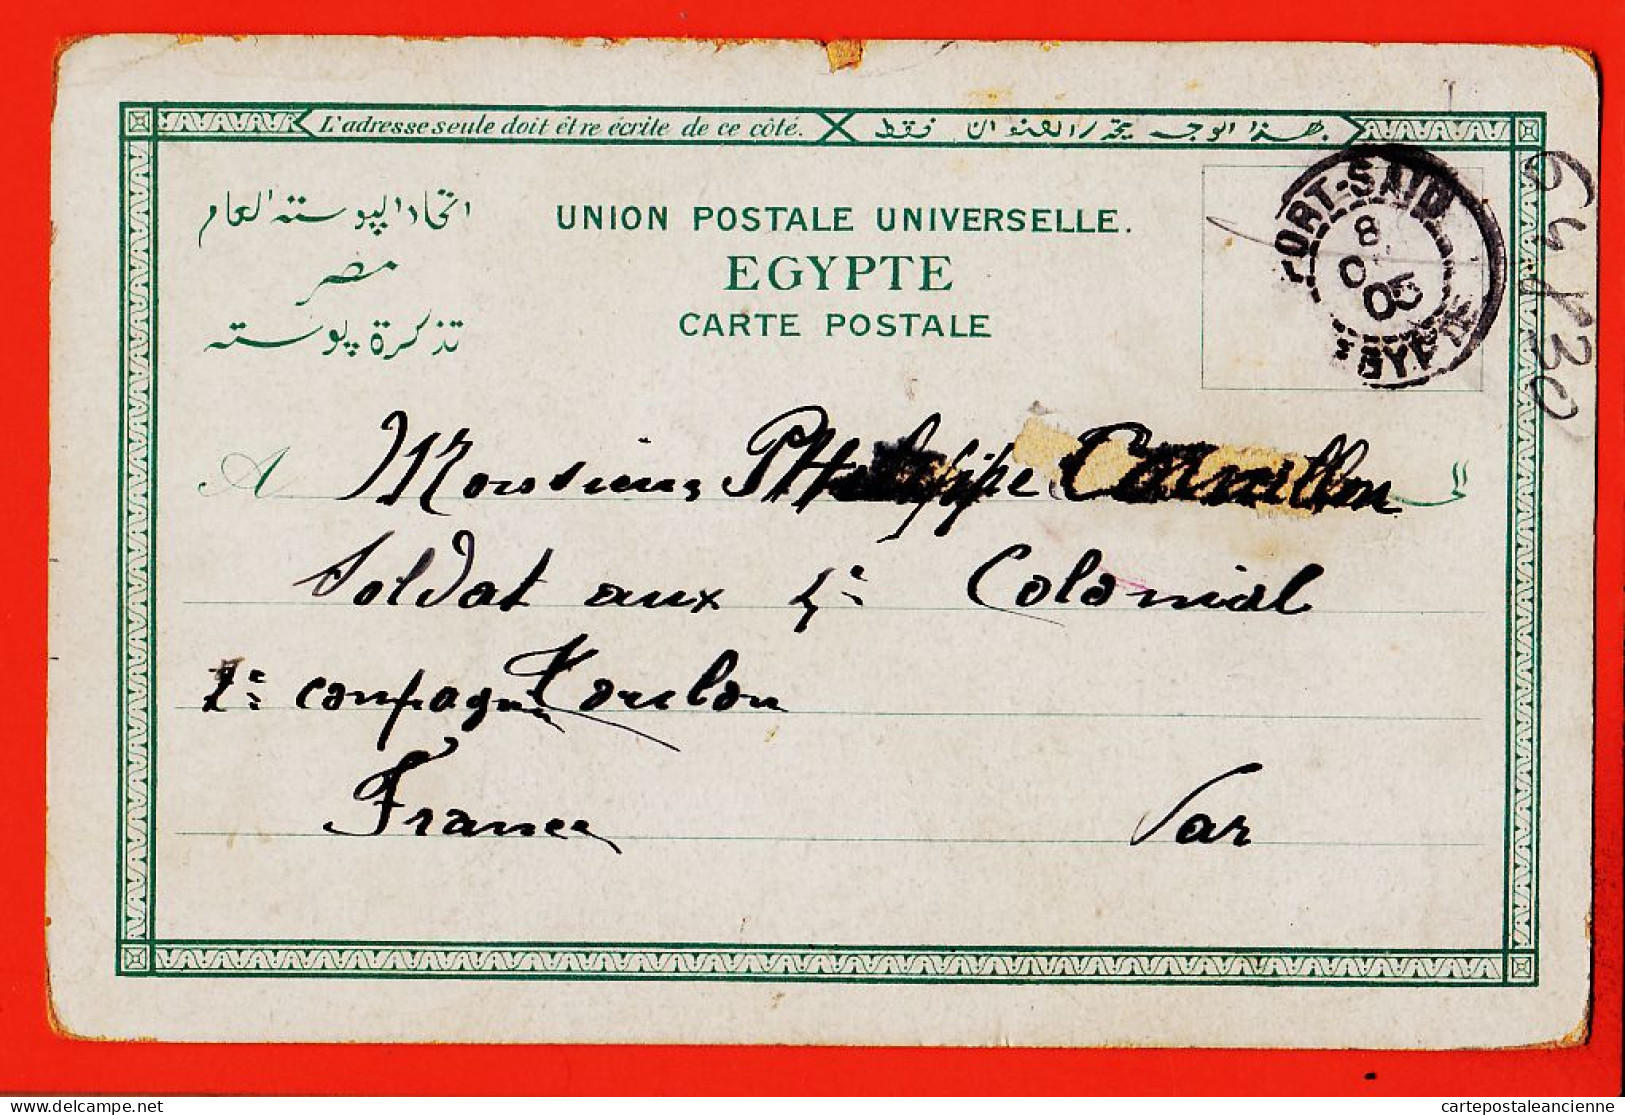 L'adresse seule doit être écrite de ce côté.
هذا الوجه يحرر العنوان فقط
اتحاد البوسته العام
مصر
تذكرة بوسته
UNION POSTALE UNIVERSELLE.
EGYPTE
CARTE POSTALE
PORT-SAID
8
05
64830
A Monsieur Philippe الى
Soldat aux 4e Colonial
2e compagnie Toulon
France Var
cartepostaleancienne
www.delcampe.net cartepostaleancienne